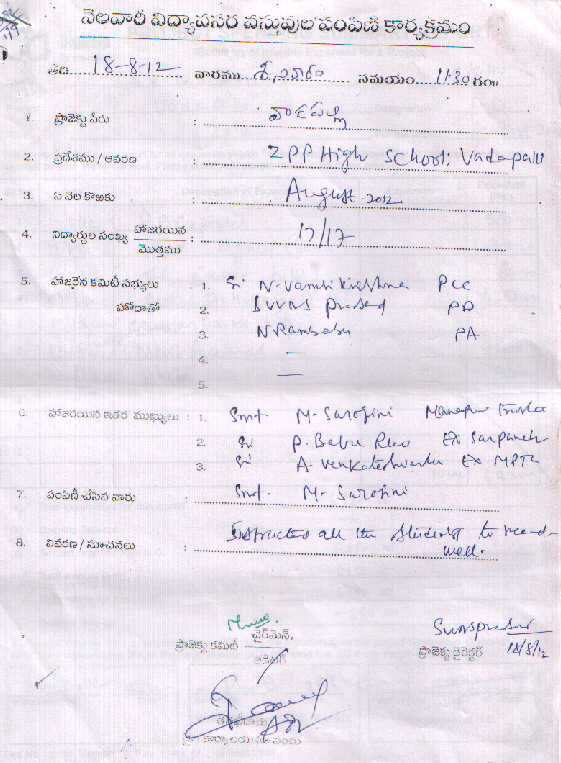 నెలవారీ విద్యాపసర వస్తువుల పంపిణీ కార్యక్రమం
తేది 18-8-12 వారము శనివారం సమయం 11:30 గం॥
1. ప్రాజెక్టు పేరు : వాడపల్లి
2. ప్రదేశము / ఆవరణ : ZPP High School: Vadapalli
3. ఏ నెల కొఱకు : August 2012
4. విద్యార్థుల సంఖ్య హాజరయిన / మొత్తము : 17/17
5. హాజరైన కమిటీ సభ్యులు : 1. Sri N. Vamsi Krishna PCC
హోదాతో 2. SVVNS Prasad PD
3. N Rambabu PA
4. —
5. —
6. హాజరయిన ఇతర ముఖ్యులు : 1. Smt. M. Sarojini
2. Sri P. Babu Rao Ex Sarpanch
3. Sri A. Venkateshwarlu Ex MPTC
7. పంపిణీ చేసిన వారు : Smt. M. Sarojini
8. వివరణ / సూచనలు : Instructed all the students to read
well.
ప్రాజెక్టు కమిటీ ఛైర్‌మెన్,
ప్రాజెక్టు డైరెక్టర్ 18/8/12